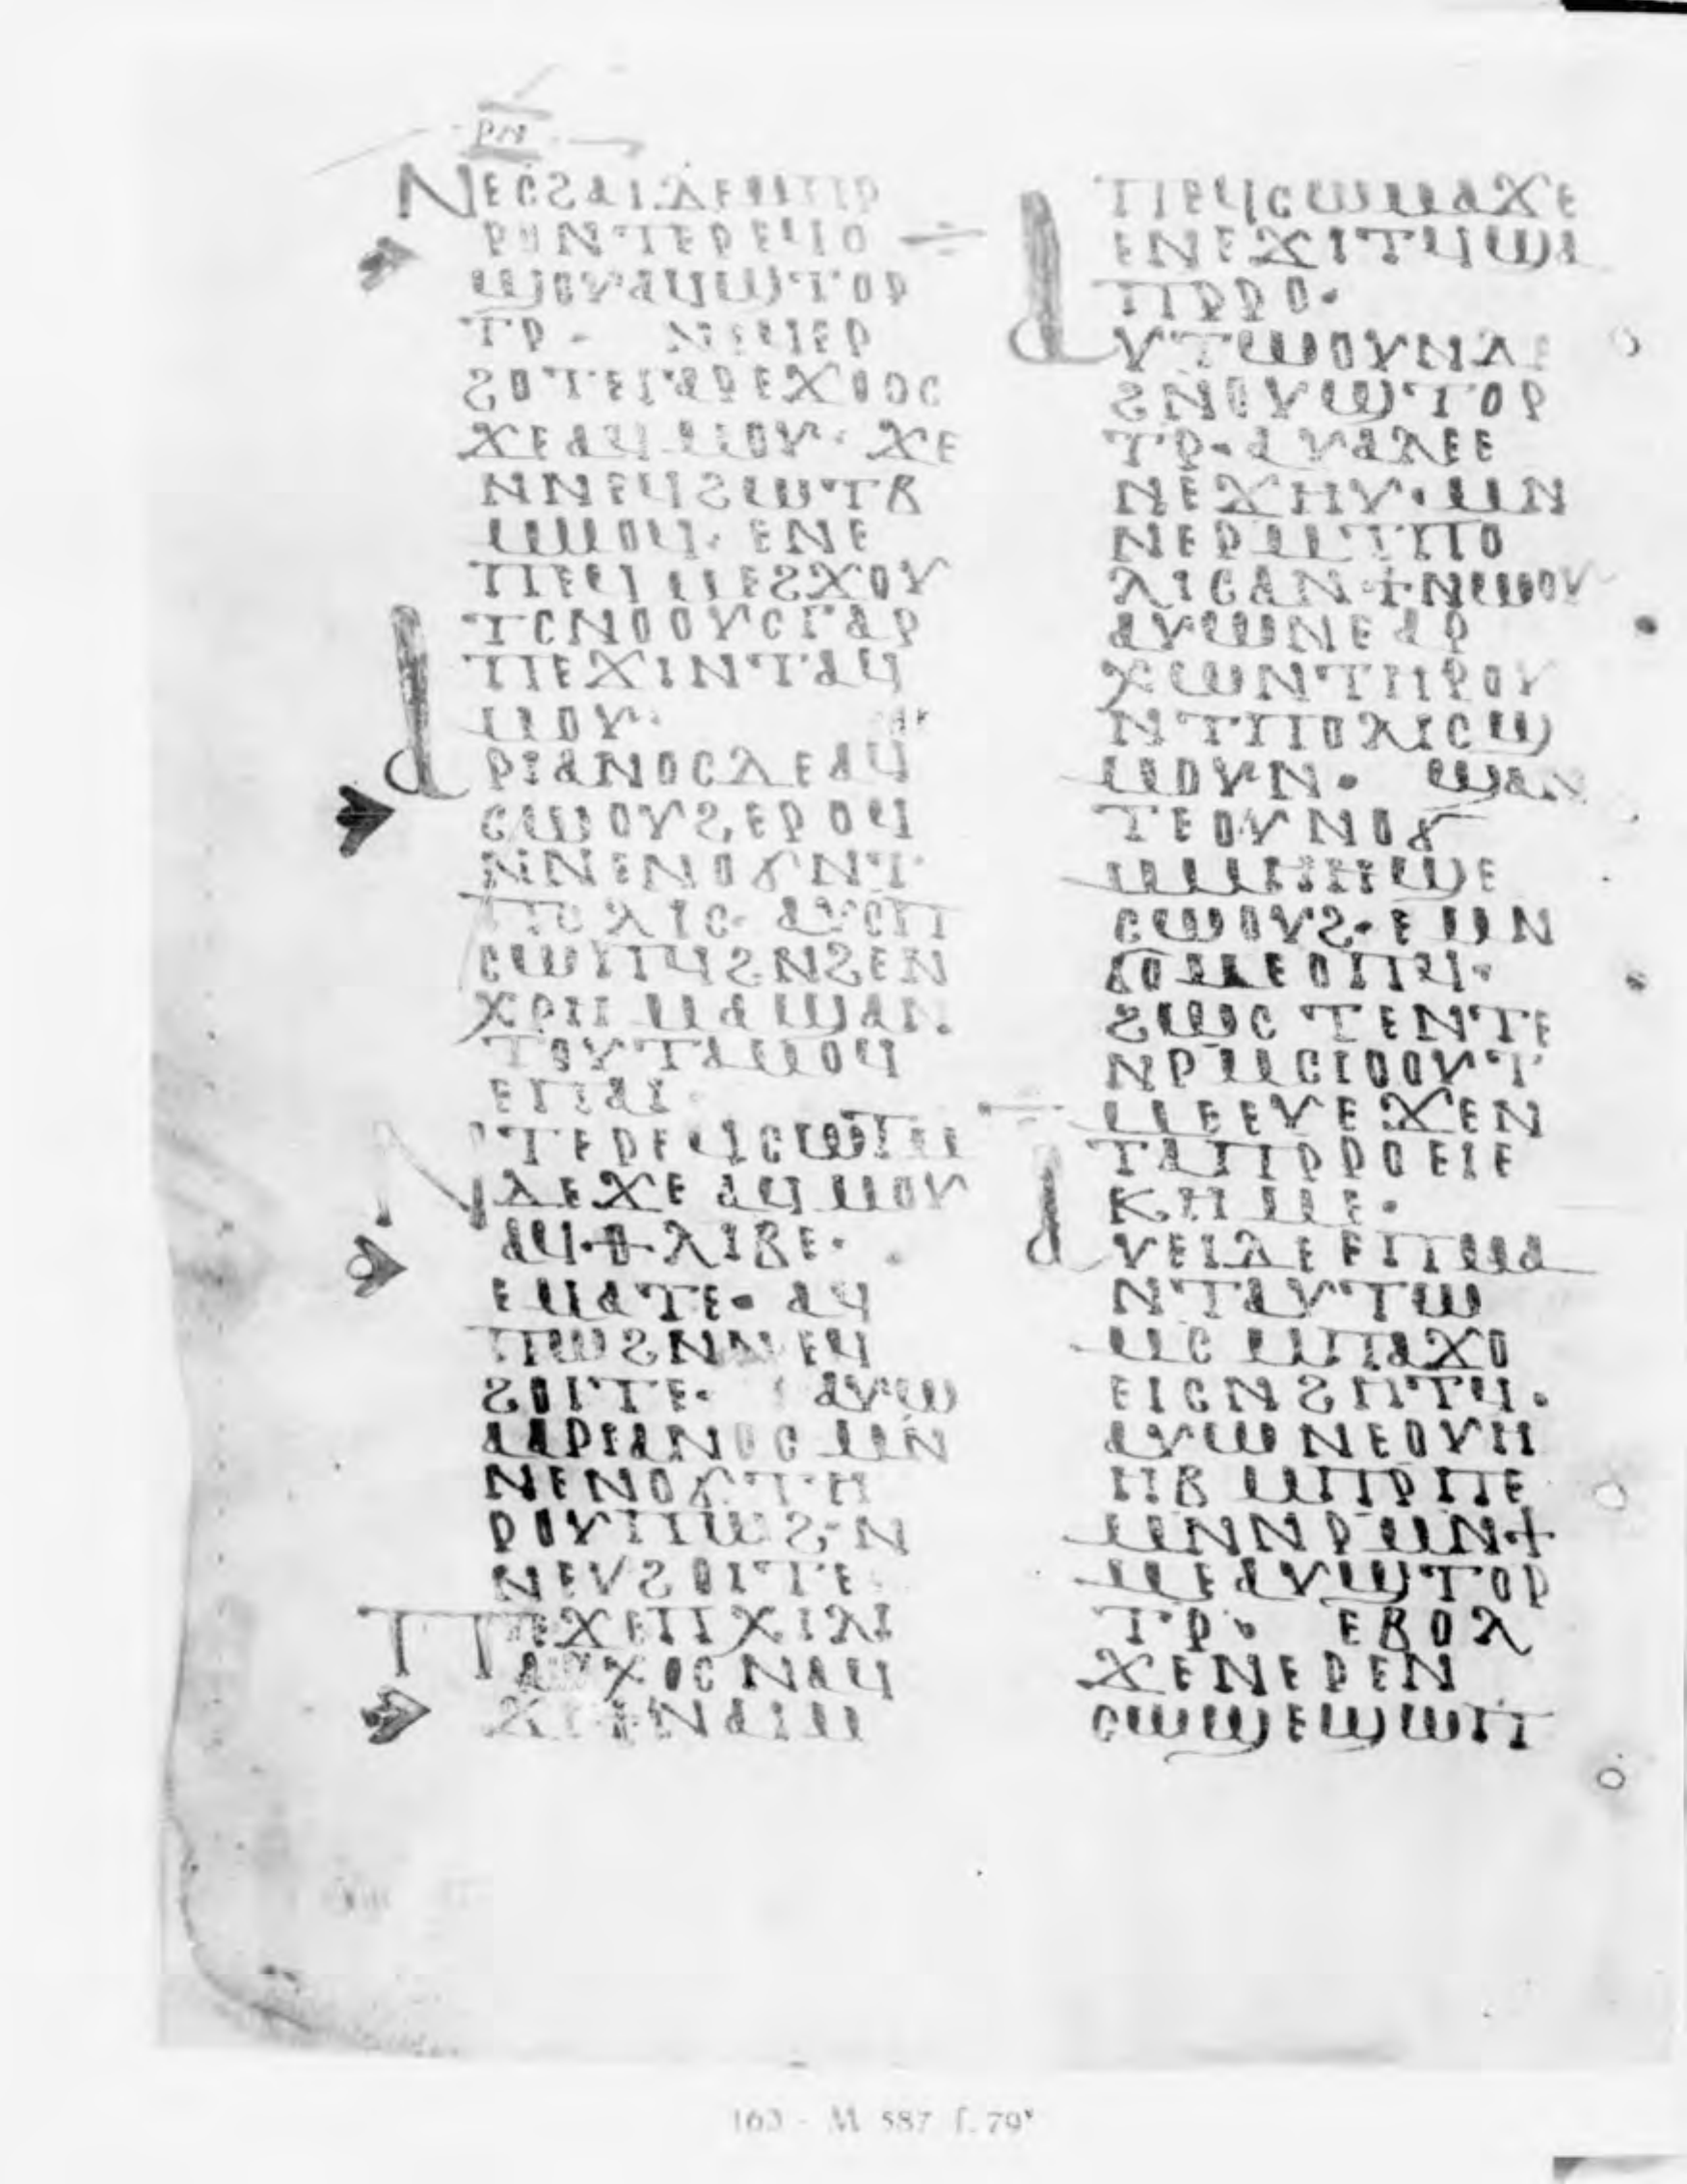 ⲣⲛ
ⲛⲉⲥϩⲁⲓ ⲇⲉ ⲙⲡⲣ
ⲣⲟ ⲛⲧⲉⲣⲉϥⲟ
ϣⲟⲩ ⲁϥϣⲧⲟⲣ
ⲧⲣ· ⲙⲉⲩⲉⲣ
ϩⲟⲧⲉ ⲅⲁⲣ ⲉϫⲟⲟⲥ
ϫⲉ ⲁϥⲙⲟⲩ· ϫⲉ
ⲛⲛⲉϥϩⲱⲧⲃ
ⲙⲙⲟϥ· ⲉⲛⲉ
ⲡⲉϥⲙⲉϩϫⲟⲩ
ⲧⲥⲛⲟⲟⲩⲥ ⲅⲁⲣ
ⲡⲉ ϫⲓⲛⲧⲁϥ
ⲙⲟⲩ·
ⲁⲣⲓⲁⲛⲟⲥ ⲇⲉ ⲁϥ
ⲥⲱⲟⲩϩ ⲉⲣⲟϥ
ⲛⲛⲉⲛⲟϭ ⲛⲧ
ⲡⲟⲗⲓⲥ· ⲁⲩⲥⲡ
ⲥⲱⲡϥ ϩⲛϩⲉⲛ
ⲭⲣⲏⲙⲁ ϣⲁⲛ
ⲧⲟⲩⲧⲁⲙⲟϥ
ⲉⲡⲁⲓ·
ⲛⲧⲉⲣⲉϥⲥⲱⲧⲙ
ⲇⲉ ϫⲉ ⲁϥⲙⲟⲩ
ⲁϥⲑⲗⲓⲃⲉ·
ⲉⲙⲁⲧⲉ· ⲁϥ
ⲡⲱϩ ⲛⲛⲉϥ
ϩⲟⲓⲧⲉ· ⲁⲩⲱ
ⲁⲇⲣⲓⲁⲛⲟⲥ ⲙⲛ
ⲛⲉⲛⲟϭ ⲧⲏ
ⲣⲟⲩ ⲡⲱϩ ⲛ
ⲛⲉⲩϩⲟⲓⲧⲉ
ⲡⲉϫⲉ ⲡⲭⲓⲗⲓ
ⲁⲣⲭⲟⲥ ⲛⲁϥ
ϫⲉ
ⲡⲉϥⲥⲱⲙⲁ ϫⲉ
ⲉⲛⲉϫⲓⲧϥ ϣⲁ
ⲡⲣⲣⲟ·
ⲁⲩⲧⲱⲟⲩⲛ ⲇⲉ
ϩⲛⲟⲩϣⲧⲟⲣ
ⲧⲣ· ⲁⲩⲁⲗⲉ ⲉ
ⲛⲉϫⲏⲩ· ⲙⲛ
ⲛⲉⲣⲙⲧⲡⲟ
ⲗⲓⲥ ⲁⲛϯⲛⲱⲟⲩ
ⲁⲩⲱ ⲛⲉⲁⲣ
ⲭⲱⲛ ⲧⲏⲣⲟⲩ
ⲛⲧⲡⲟⲗⲓⲥ ϣ
ⲙⲟⲩⲛ· ϣⲁⲛ
ⲧⲉⲟⲩⲛⲟϭ
ⲙⲙⲏⲏϣⲉ
ⲥⲱⲟⲩϩ· ⲉⲙⲛ
ϭⲟⲙ ⲉⲟⲡϥ·
ϩⲱⲥⲧⲉ ⲛⲧⲉ
ⲛⲣⲙⲥⲓⲟⲟⲩⲧ
ⲙⲉⲉⲩⲉ ϫⲉ ⲛ
ⲧⲁⲡⲣⲣⲟ ⲉⲓ ⲉ
ⲕⲏⲙⲉ·
ⲁⲩⲉⲓ ⲇⲉ ⲉⲡⲙⲁ
ⲛⲧⲁⲩⲧⲱ
ⲙⲥ ⲙⲡⲁϫⲟ
ⲉⲓⲥ ⲛϩⲏⲧϥ·
ⲁⲩⲱ ⲛⲉⲟⲩⲏ
ⲏⲃ ⲙⲡⲣⲡⲉ
ⲙⲛ ⲛⲣⲙⲛϯ
ⲙⲉ ⲁⲩϣⲧⲟⲣ
ⲧⲣ· ⲉⲃⲟⲗ
ϫⲉ ⲛⲉⲣⲉⲛ
ⲥⲱϣⲉ ϣⲱⲡ
M 587 f. 79ᵛ